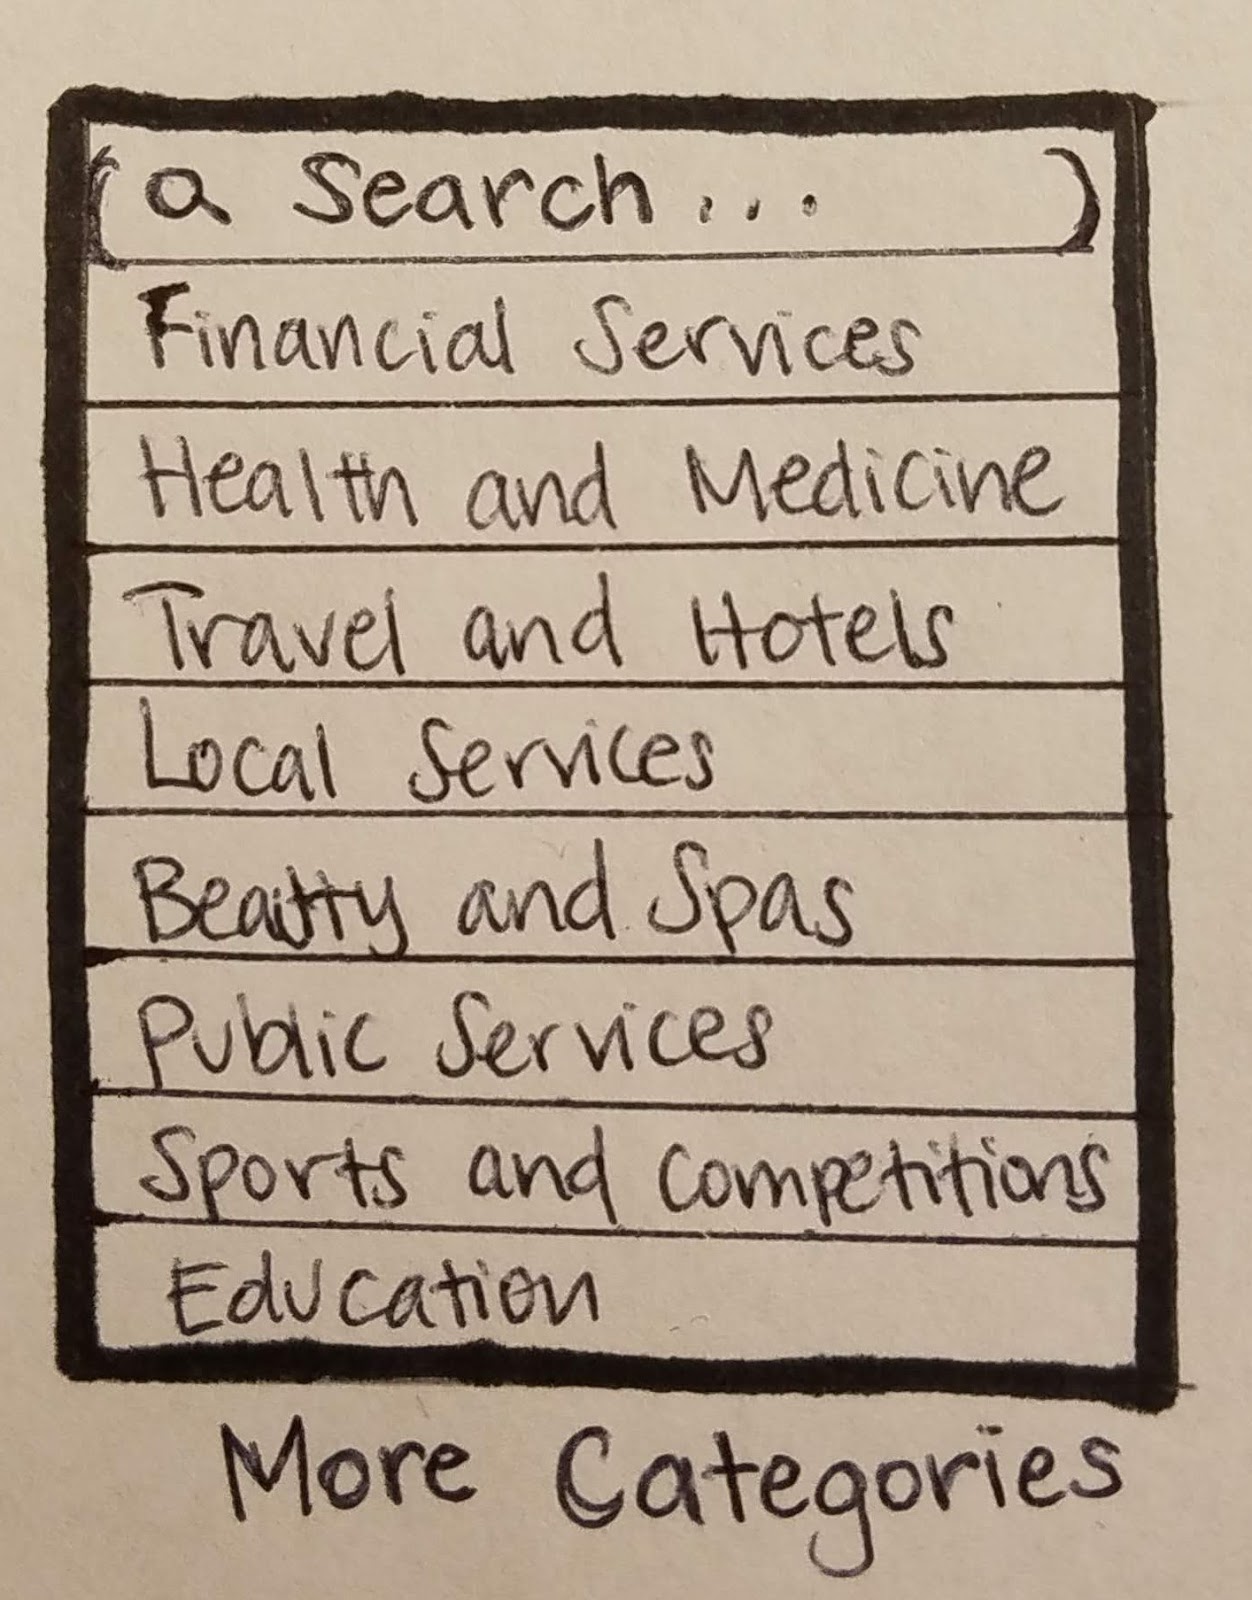 Search...
Financial Services
Health and Medicine
Travel and Hotels
Local Services
Beautty and Spas
Public Services
Sports and Competitions
Education
More Categories